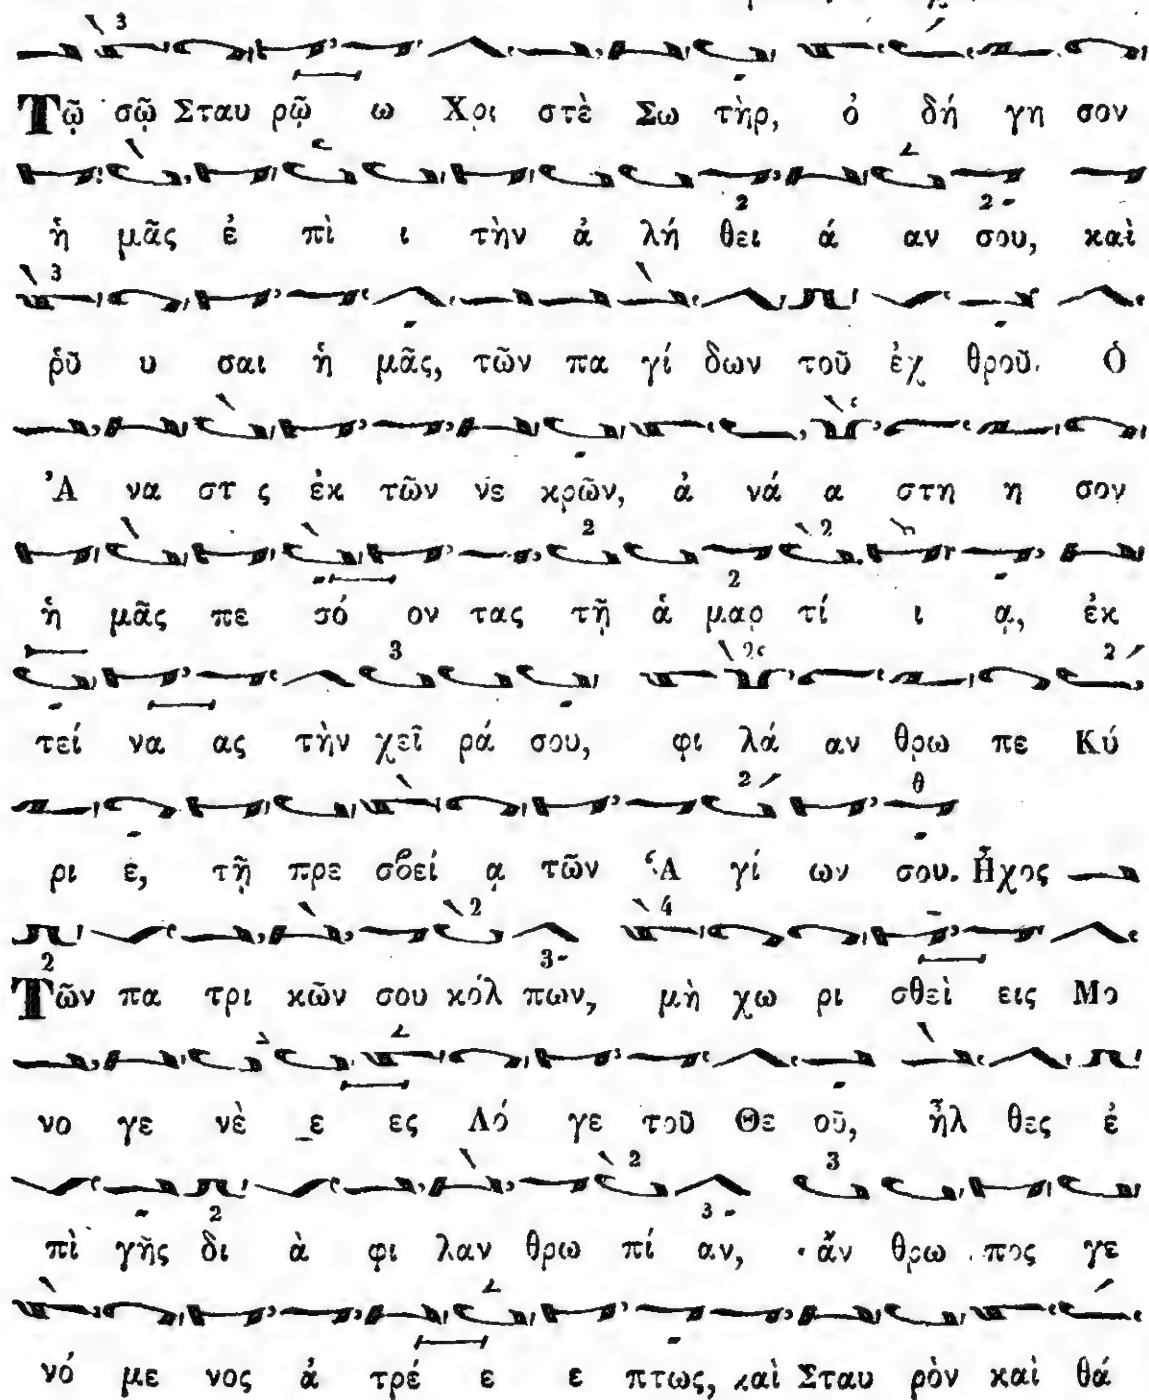 Τῷ σῷ Σταυ ρῷ ω Χρι στὲ Σω τὴρ, ὁ δή γη σον
ἡ μᾶς ἐ πὶ ι τὴν ἀ λή θει ά αν σου, καὶ
ῥῦ υ σαι ἡ μᾶς, τῶν πα γί δων τοῦ ἐχ θροῦ. Ὁ
Ἀ να στ ς ἐκ τῶν νε κρῶν, ἀ νά α στη η σον
ἡ μᾶς πε σό ον τας τῇ ἁ μαρ τί ι ᾳ, ἐκ
τεί να ας τὴν χεῖ ρά σου, φι λά αν θρω πε Κύ
ρι ε, τῇ πρε σβεί ᾳ τῶν Ἁ γί ων σου. Ἦχος
Τῶν πα τρι κῶν σου κόλ πων, μὴ χω ρι σθεὶ εις Μο
νο γε νὲ ε ες Λό γε τοῦ Θε οῦ, ἦλ θες ἐ
πὶ γῆς δι ὰ φι λαν θρω πί αν, ἄν θρω πος γε
νό με νος ἀ τρέ ε ε πτως, καὶ Σταυ ρὸν καὶ θά